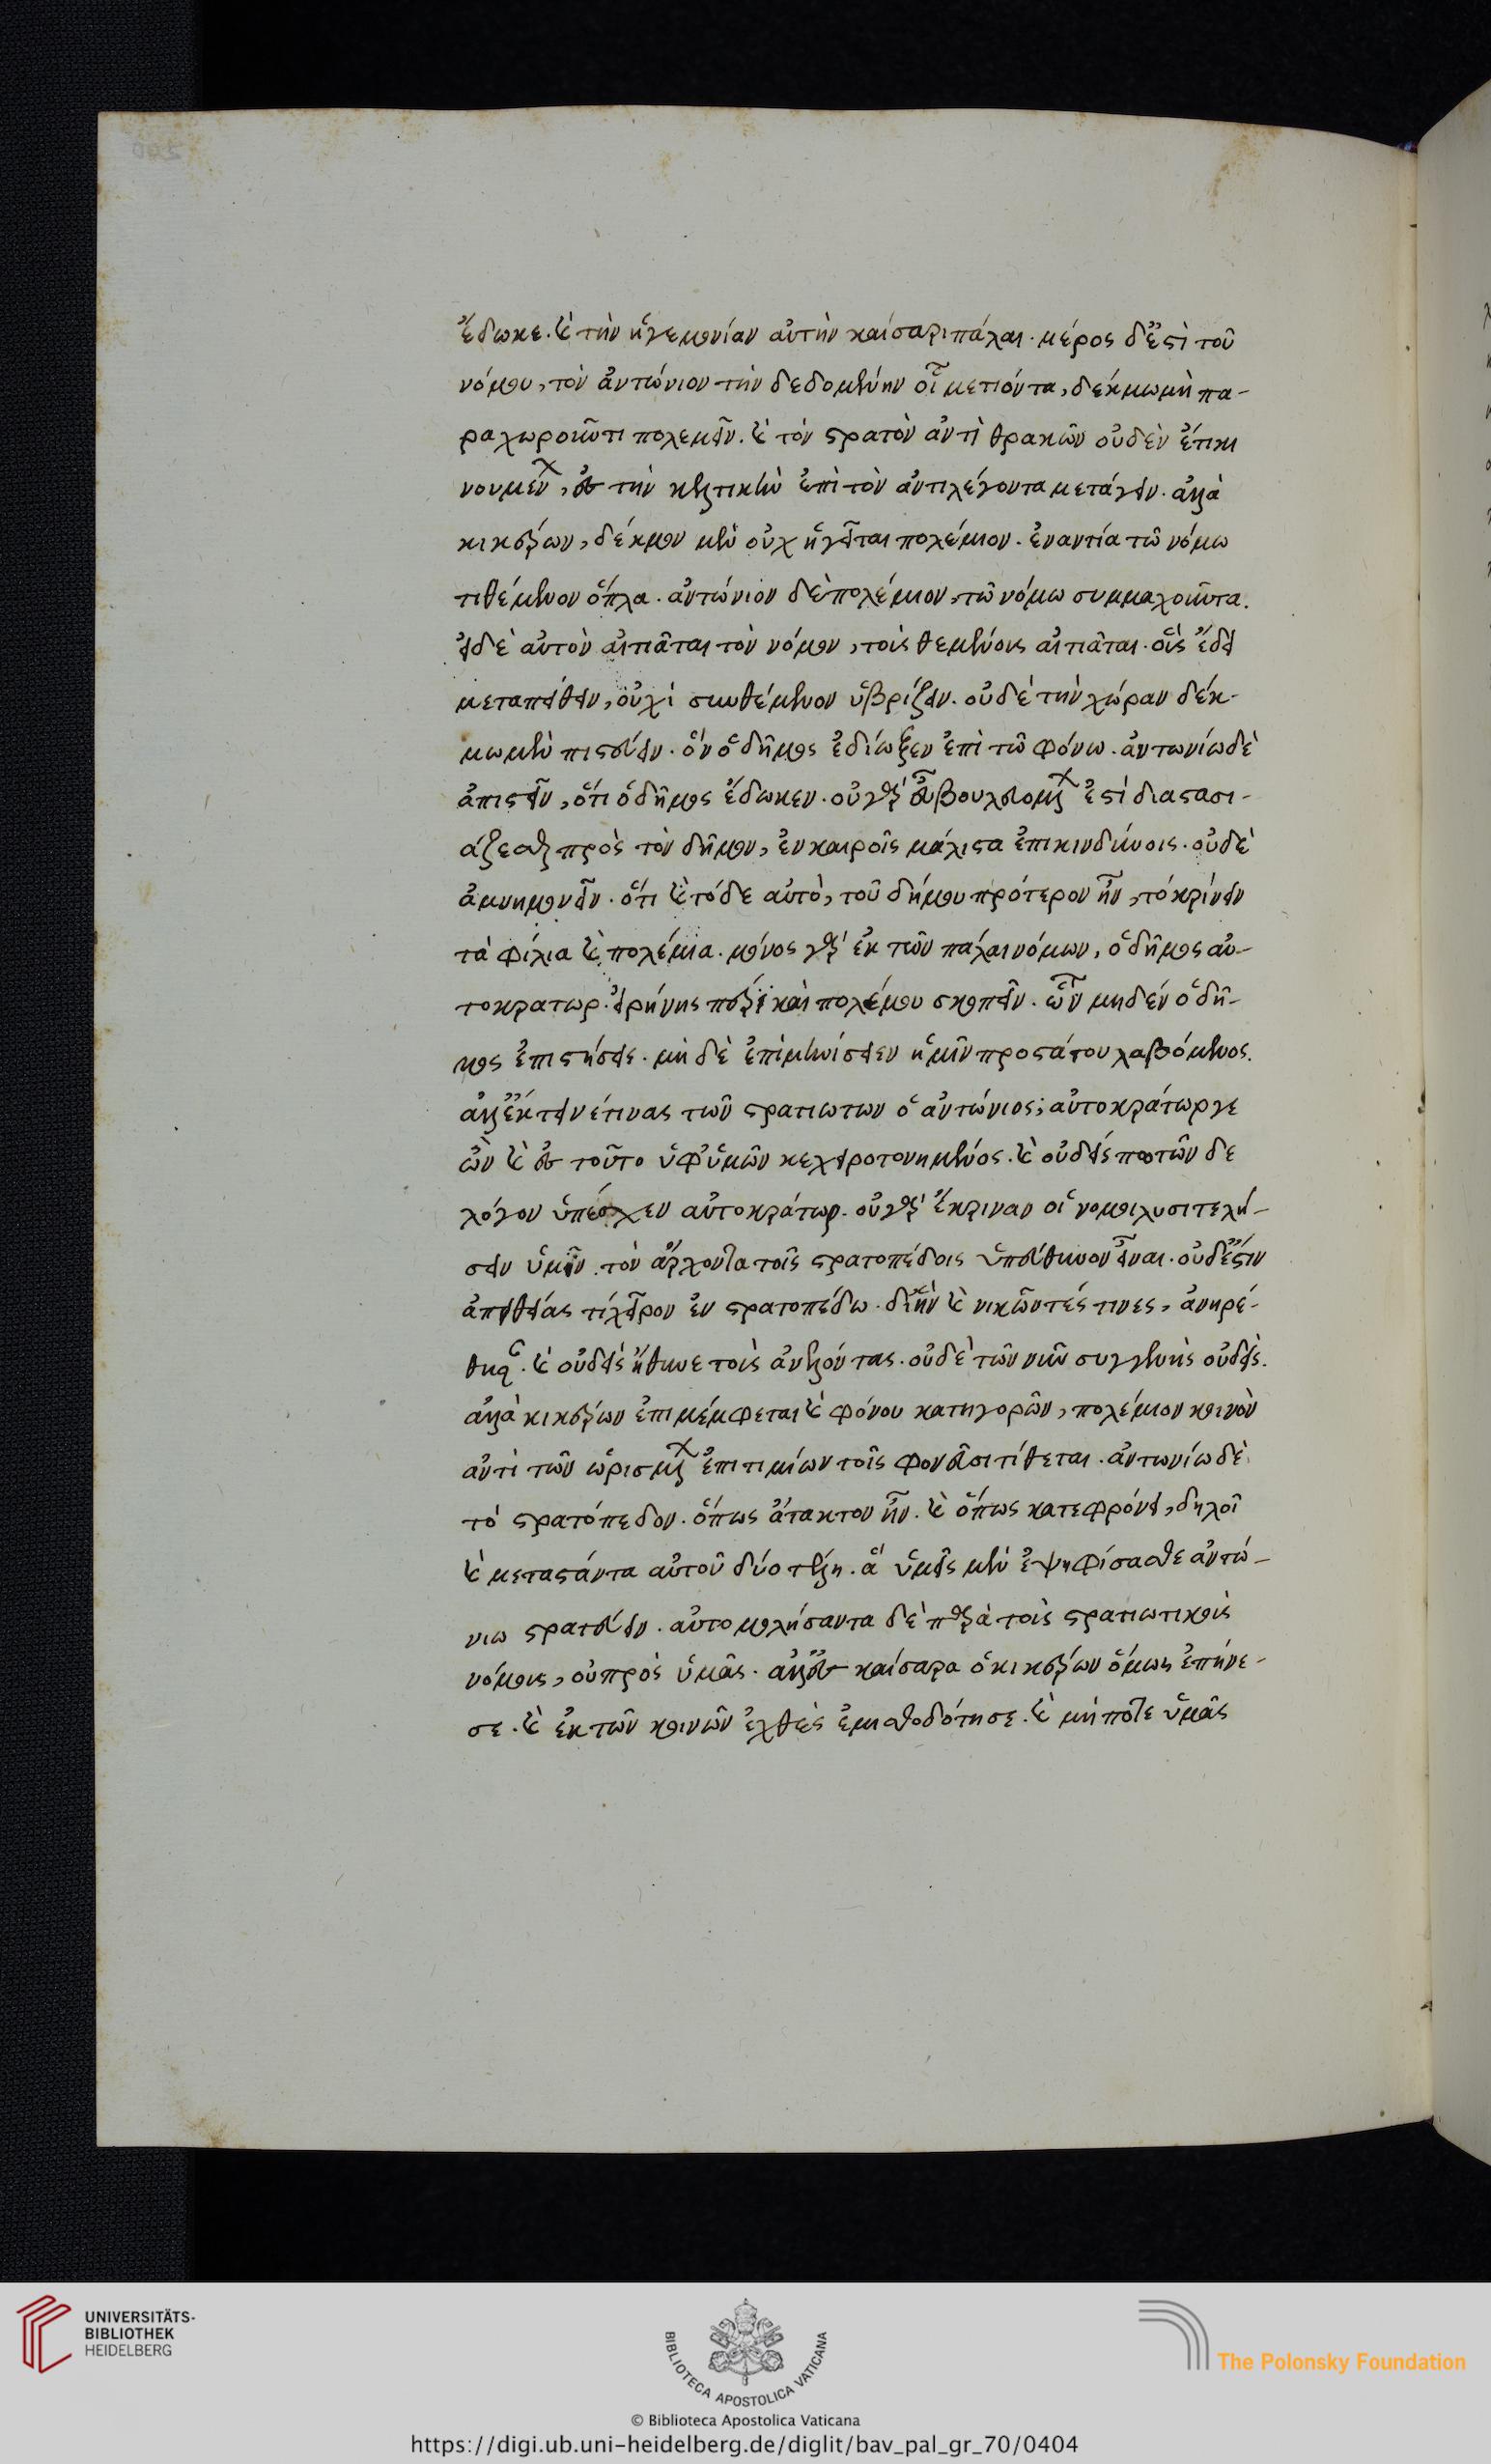 ἔδωκε. καὶ τὴν ἡγεμονίαν αὐτὴν καίσαρι πάλαι. μέρος δ' ἐστὶ τοῦ
νόμου, τὸν ἀντώνιον τὴν δεδομένην οἷ μετιόντα, δέκμω μὴ πα-
ραχωροῦντι πολεμεῖν. καὶ τὸν στρατὸν ἀντὶ θρακῶν οὐδὲν ἔτι κι
νουμένων, ἐς τὴν κελτικὴν ἐπὶ τὸν ἀντιλέγοντα μετάγειν. ἀλλὰ
κικέρων, δέκμον μὲν οὐχ ἡγεῖται πολέμιον. ἐναντία τῶ νόμω
τιθέμενον ὅπλα. ἀντώνιον δὲ πολέμιον, τῶ νόμω συμμαχοῦντα.
εἰ δὲ αὐτὸν αἰτιᾶται τὸν νόμον, τοὺς θεμένους αἰτιᾶται. οὓς ἔδει
μεταπείθειν, οὐχὶ συνθέμενον ὑβρίζειν. οὐδὲ τὴν χώραν δέκ-
μω μὲν πιστεύειν. ὃν ὁ δῆμος ἐδίωξεν ἐπὶ τῶ φόνω. ἀντωνίω δὲ
ἀπιστεῖν, ὅτι ὁ δῆμος ἔδωκεν. οὐ γὰρ εὖ βουλευομένων ἐστὶ διαστασι-
άζεσθαι πρὸς τὸν δῆμον, ἐν καιροῖς μάλιστα ἐπικινδύνοις. οὐδὲ
ἀμνημονεῖν. ὅτι καὶ τόδε αὐτὸ, τοῦ δήμου πρότερον ἦν, τὸ κρίνειν
τὰ φίλια καὶ πολέμια. μόνος γὰρ ἐκ τῶν πάλαι νόμων, ὁ δῆμος αὐ-
τοκρατωρ. εἰρήνης πέρι καὶ πολέμου σκοπεῖν. ὧν μηδὲν ὁ δῆ-
μος ἐπιστήσειε. μὴ δὲ ἐπιμηνίσειεν ἡμῖν προστάτου λαβόμενος.
ἀλλ' ἔκτεινέ τινας τῶν στρατιωτων ὁ ἀντώνιος; αὐτοκράτωρ γε
ὢν καὶ ἐς τοῦτο ὑφ' ὑμῶν κεχειροτονημένος. καὶ οὐδείς πω τῶν δε
λόγον ὑπέσχεν αὐτοκράτωρ. οὐ γὰρ ἔκριναν οἱ νόμοι λυσιτελή-
σειν ὑμῖν τὸν ἄρχοντα τοῖς στρατοπέδοις ὑπεύθυνον εἶναι. οὐδ' ἔστιν
ἀπειθείας τί χεῖρον ἐν στρατοπέδω. δι' ἣν καὶ νικῶντές τινες, ἀνηρέ-
θησαν. καὶ οὐδεὶς ἤθυνε τοὺς ἀνελόντας. οὐδὲ τῶν νῦν συγγενὴς οὐδεὶς.
ἀλλὰ κικέρων ἐπιμέμφεται καὶ φόνου κατηγορῶν, πολέμιον κοινὸν
ἀντὶ τῶν ὡρισμένων ἐπιτιμίων τοῖς φονεῦσι τίθεται. ἀντωνίω δὲ
τὸ στρατόπεδον. ὅπως ἄτακτον ἦν. καὶ ὅπως κατεφρόνει, δηλοῖ
καὶ μεταστάντα αὐτοῦ δύο τέλη. ἃ ὑμεῖς μὲν ἐψηφίσασθε ἀντώ-
νιω στρατεύειν. αὐτομολήσαντα δὲ παρὰ τοὺς στρατιωτικοὺς
νόμους, οὐ πρὸς ὑμᾶς. ἀλλ' ἐς καίσαρα ὁ κικέρων ὅμως ἐπήνε-
σε. καὶ ἐκ τῶν κοινῶν ἐχθὲς ἐμισθοδότησε. καὶ μή ποτε ὑμᾶς
UNIVERSITÄTS-
BIBLIOTHEK
HEIDELBERG
BIBLIOTECA APOSTOLICA VATICANA
The Polonsky Foundation
© Biblioteca Apostolica Vaticana
https://digi.ub.uni-heidelberg.de/diglit/bav_pal_gr_70/0404